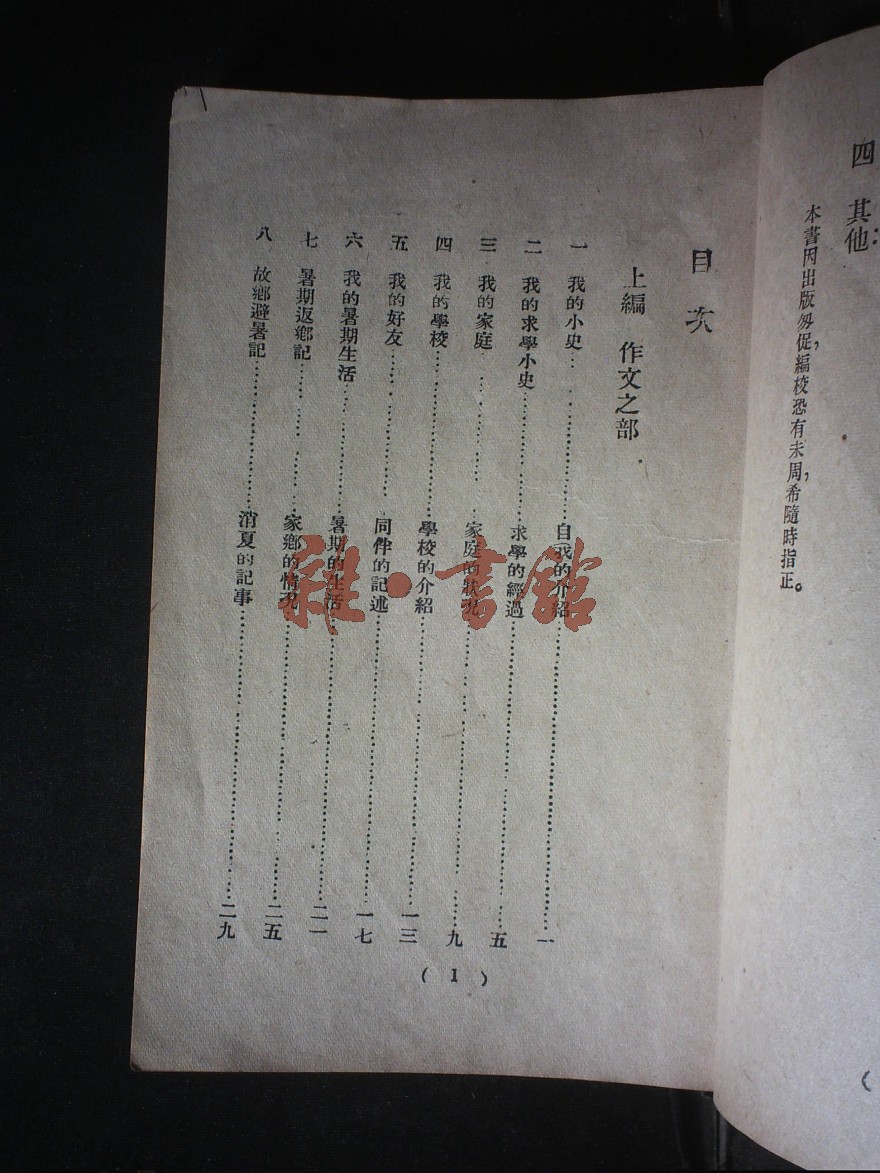 四　其他：
本書因出版匆促，編校恐有未周，希隨時指正。
目次
上編　作文之部
一　我的小史……自我的介紹……一
二　我的求學小史……求學的經過……五
三　我的家庭……家庭的狀況……九
四　我的學校……學校的介紹……一三
五　我的好友……同伴的記述……一七
六　我的暑期生活……暑期的生活……二一
七　暑期返鄉記……家鄉的情況……二五
八　故鄉避暑記……消夏的記事……二九
(1)
雜·書館